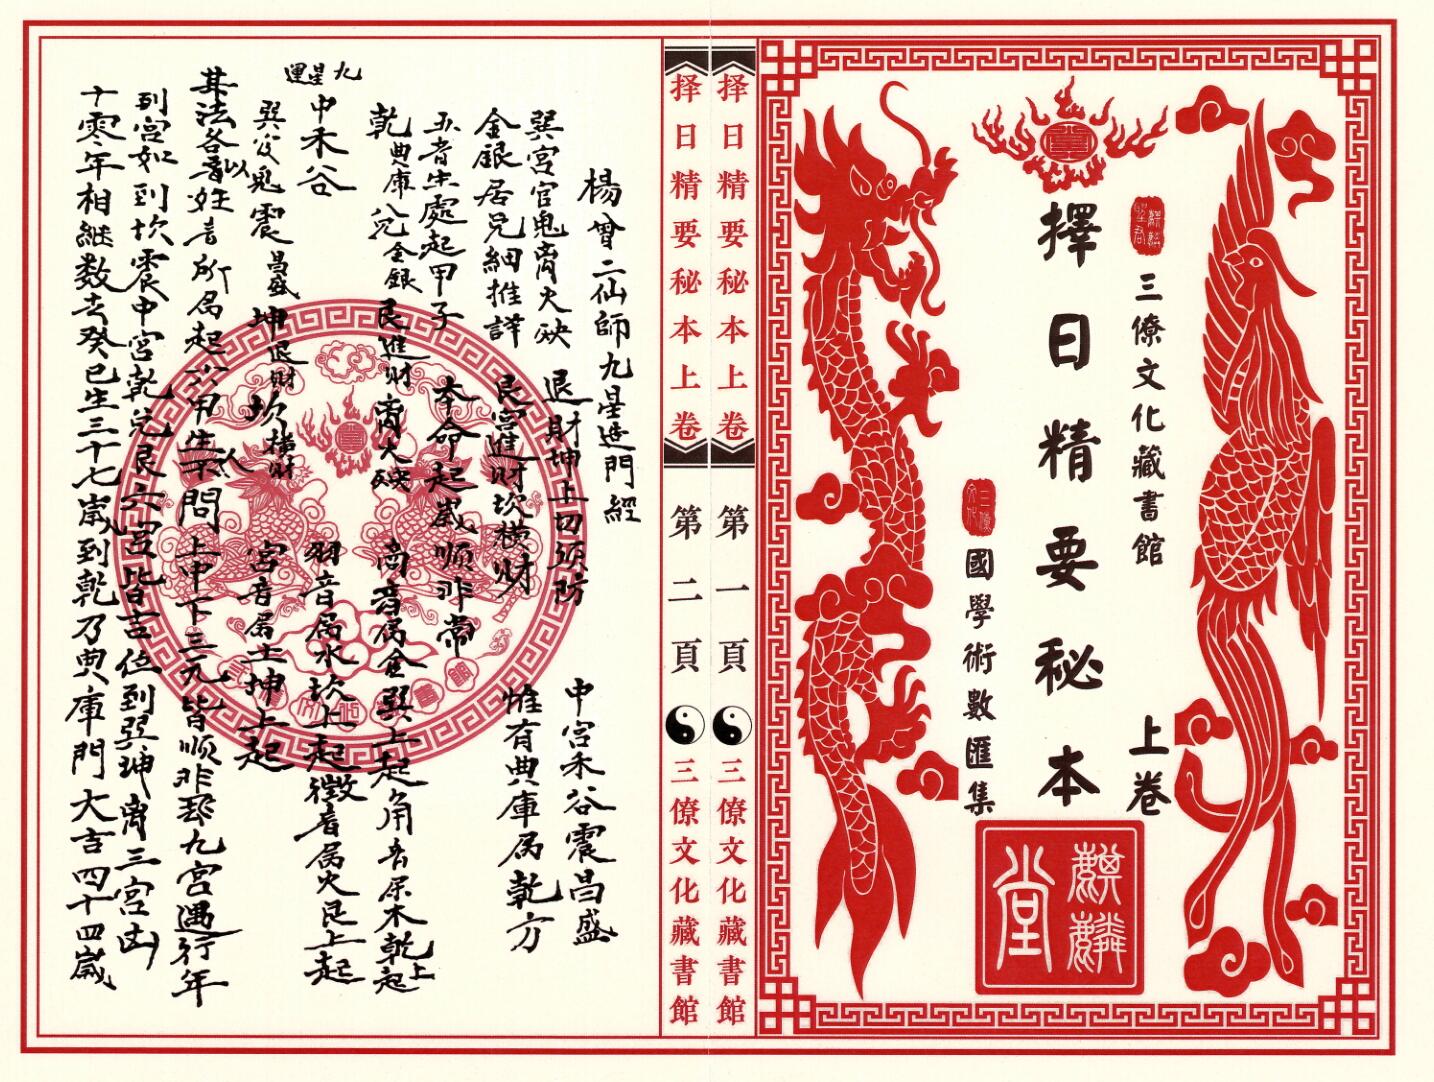 三僚文化藏書館
上卷
擇日精要秘本
國學術數匯集
麒麟堂
择日精要秘本上卷
第一頁
三僚文化藏書館
择日精要秘本上卷
第二頁
三僚文化藏書館
楊曾二仙師九星進門經
巽宮官鬼离火殃 退財坤上切須防 中宮禾谷震昌盛
金銀居兌細推詳 艮宮進財坎横財 惟有典庫属乾方
五音生處起甲子 本命起歲順非常
乾典庫 兌金銀 艮進財 离火殃 商音属金巽上起 角音属木乾上起
九星運
中禾谷
震昌盛 坤退財 坎横財 羽音属水坎上起 徵音属火艮上起
宮音属土坤上起
其法各以音姓音所属起六甲生人不问上中下三元皆顺非那九宮遇行年
到宮如到坎震中宮乾兌艮六宮皆吉位到巽坤离三宮凶
十零年相継数去癸巳生三十七歲到乾乃典庫門大吉四十四歲